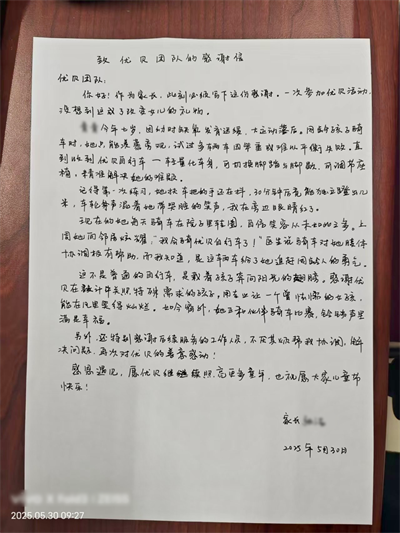 致优贝团队的感谢信
优贝团队:
你好!作为家长,此刻必须写下这份感谢。一次参加优贝活动,
没想到这成了改变女儿的礼物。
今年七岁,因幼时缺氧发育迟缓,大运动落后。同龄孩子骑
车时,她只能羡慕旁观,试过多辆车因笨重难以平衡失败。直
到收到优贝自行车 — 轻量化车身,可切换脚踏与脚蹬,可调节座
椅,精准解决她的难题。
记得第一次练习,她扶车把的手还在抖,30分钟后竟能独立蹬出几
米,车轮声混着她带哭腔的笑声,我在旁边眼睛红了。
现在的她每天骑车在院子里转圈,自信笑容从未如此多。上
周她向邻居炫耀,“我会骑优贝自行车了!”医生说骑车对她肢体
协调极有帮助,而我知道,是这辆车给了她追赶同龄人的勇气。
这不是普通的自行车,是载着孩子奔向阳光的翅膀。感谢优
贝在设计中关照特殊需求的孩子,用专业让一个曾怯懦的女孩,
能在风里笑得灿烂。如今窗外,她正和伙伴骑车比赛,铃铛声里
满是幸福。
另外,还特别感谢后续服务的工作人员,不厌其烦帮我协调,解
决问题,再次对优贝的善意感动!
感恩遇见,愿优贝继续照亮更多童年,也祝愿大家儿童节
快乐!
家长
2025年5月30日
2025.05.30 09:27